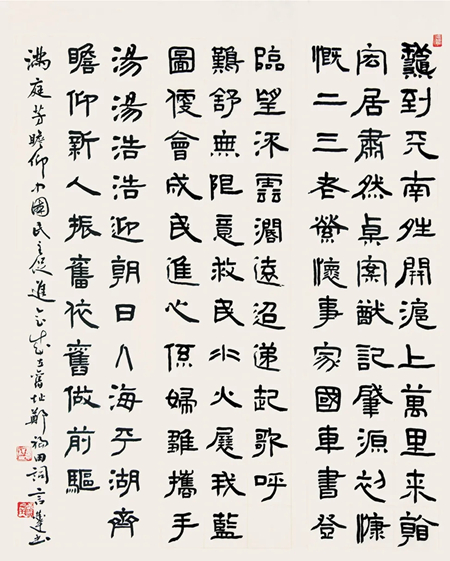 到天南開滬上萬里來
宏居肅然桌案猷記肇源初慷
慨二三老縈懷事家國車書登
臨望雲濶遠迢遞起歌呼
舒無限意救民水火展我藍
圖便會成民進心係婦雛攜手
湯湯浩浩迎朝日人海平湖齊
瞻仰新人振奮依舊做前驅
滿庭芳瞻仰中國民主促進會成立舊址鄭福田詞言達書